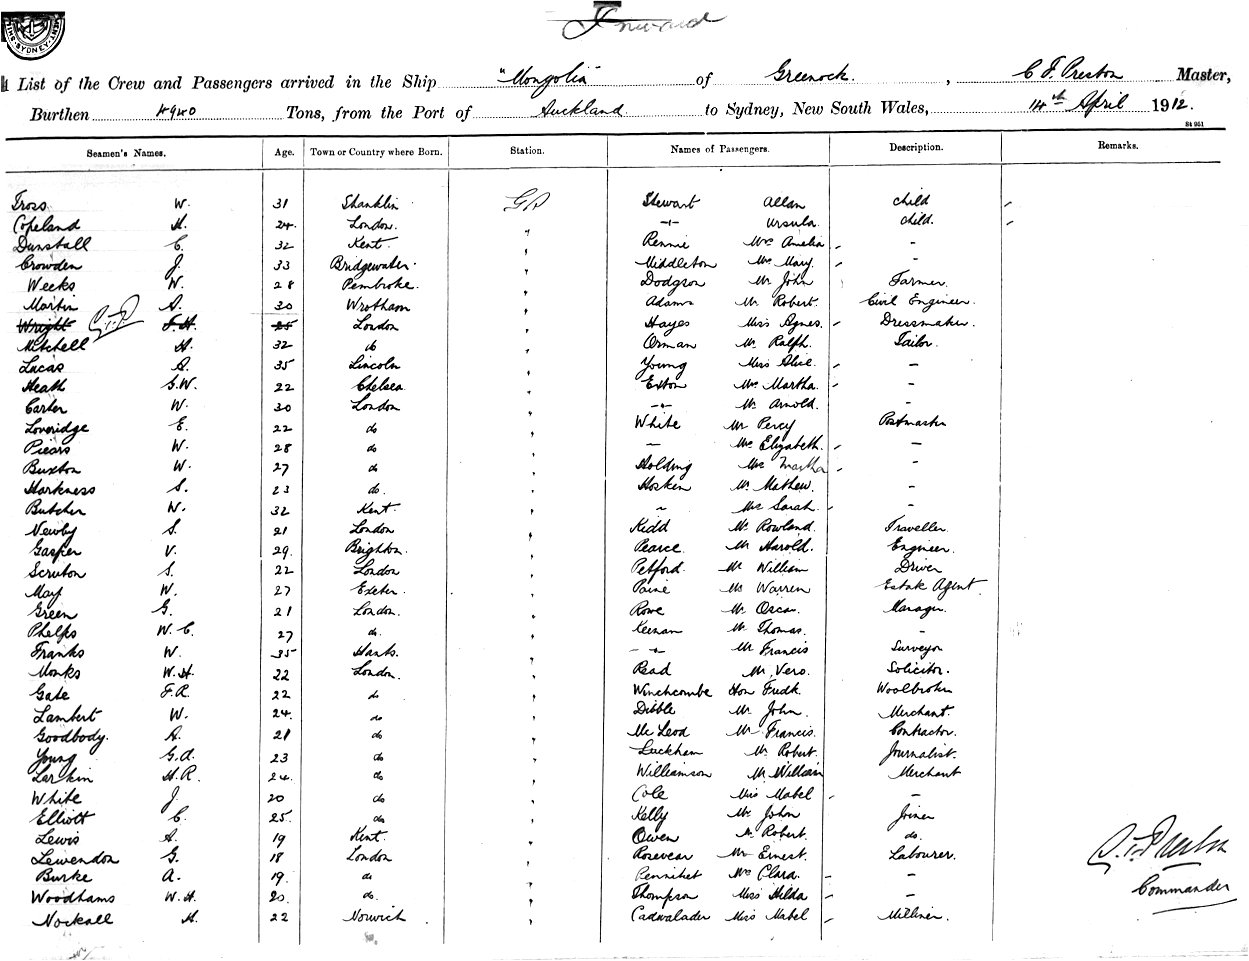 Inward
List of the Crew and Passengers arrived in the Ship "Mongolia" of Greenock, C F Preston Master,
Burthen 4940 Tons, from the Port of Auckland to Sydney, New South Wales, 14th April 1912.
St 951
Seamen's Names. Age. Town or Country where Born. Station. Names of Passengers. Description. Remarks.
Tross W. 31 Shanklin GS Stewart Allan child
Copeland H. 24 London. " —"— Ursula child.
Dunstall C. 32 Kent. " Rennie Mrs Amelia -
Crowden J. 33 Bridgewater. " Middleton Mrs Mary. -
Weeks W. 28 Pembroke. " Dodgson Mr John Farmer.
Martin A. 30 Wrotham " Adams Mr Robert. Civil Engineer.
Wright F.H. 25 London " Hayes Miss Agnes. Dressmaker.
Mitchell H. 32 do " Orman Mr Ralph. Tailor.
Lucas A. 35 Lincoln " Young Miss Alice. -
Heath G.W. 22 Chelsea " Exton Mrs Martha. -
Carter W. 30 London " —"— Mr Arnold. -
Loveridge E. 22 do " White Mr Percy Postmaster
Piears W. 28 do " — Mrs Elizabeth. -
Buxton W. 27 do " Holding Mrs Martha -
Harkness S. 23 do. " Hosken Mr Mathew. -
Butcher W. 32 Kent. " " Mrs Sarah -
Newby S. 21 London " Kidd Mr Rowland Traveller.
Gasper V. 29. Brighton. " Pearce Mr Harold. Engineer.
Scruton S. 22 London " Petford Mr William Driver
May W. 27 Exeter. " Paine Mr Warren Estate Agent
Green G. 21 London. " Rowe Mr Oscar. Manager.
Phelps W.C. 27 do. " Keenan Mr Thomas. -
Franks W. 35 Hants. " —"— Mr Francis Surveyor
Monks W.H. 22 London. " Read Mr Vero. Solicitor.
Gate F.R. 22 do " Winchcombe Hon Fredk. Woolbroker
Lambert W. 24. do " Dibble Mr John. Merchant.
Goodbody. A. 21 do " McLeod Mr Francis. Contractor.
Young G.A. 23 do " Luckham Mr Robert. Journalist.
Larkin H.R. 24. do " Williamson Mr William Merchant
White J. 20 do " Cole Miss Mabel -
Elliott C. 25. do " Kelly Mr John Joiner
Lewis A. 19 Kent. " Owen Mr Robert. do.
Lewendon G. 18 London " Rosevear Mr Ernest. Labourer.
Burke A. 19. do " Pennihet Mrs Clara. -
Woodhams W.H. 20 do. " Thompson Miss Hilda -
Nockall H. 22 Norwich " Cadwalader Miss Mabel Milliner.
C.F. Preston
Commander